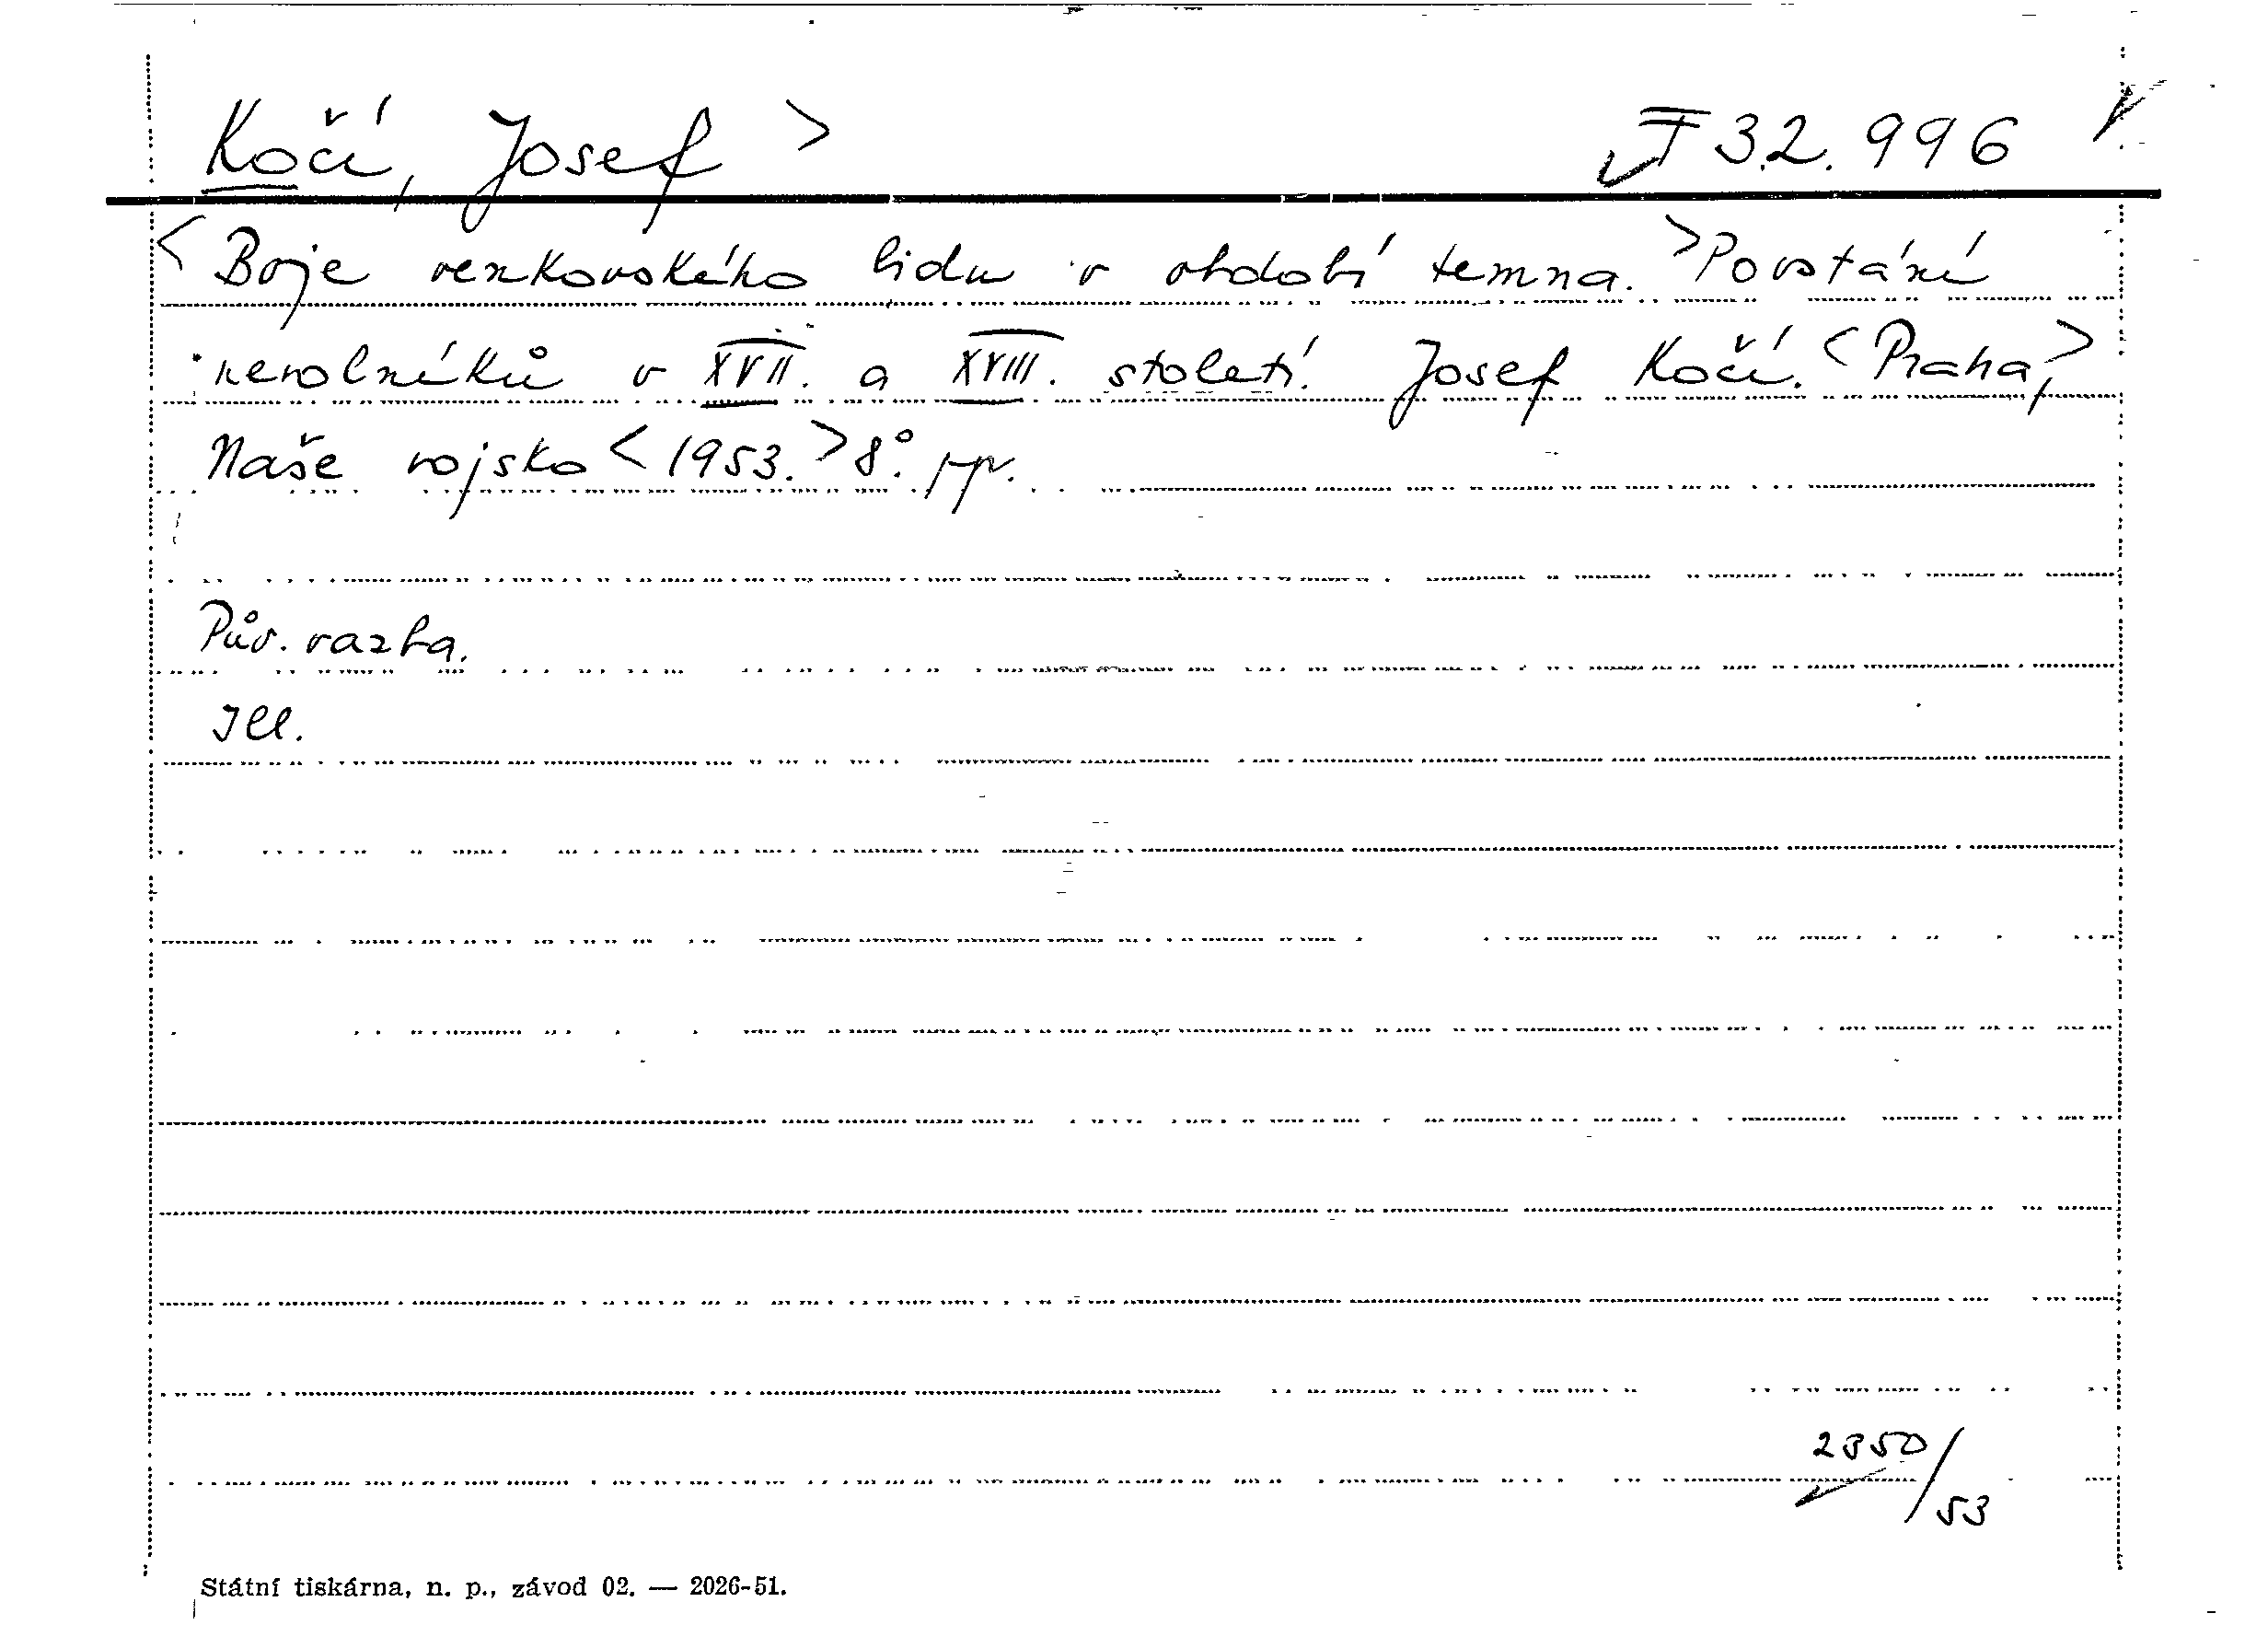 Kočí, Josef > I 32.996
< Boje venkovského lidu v období temna. > Povstání
nevolníků v XVII. a XVIII. století. Josef Kočí. < Praha, >
Naše vojsko < 1953. > 8°.
Pův. vazba.
Ill.
2350/53
Státní tiskárna, n. p., závod 02. — 2026-51.